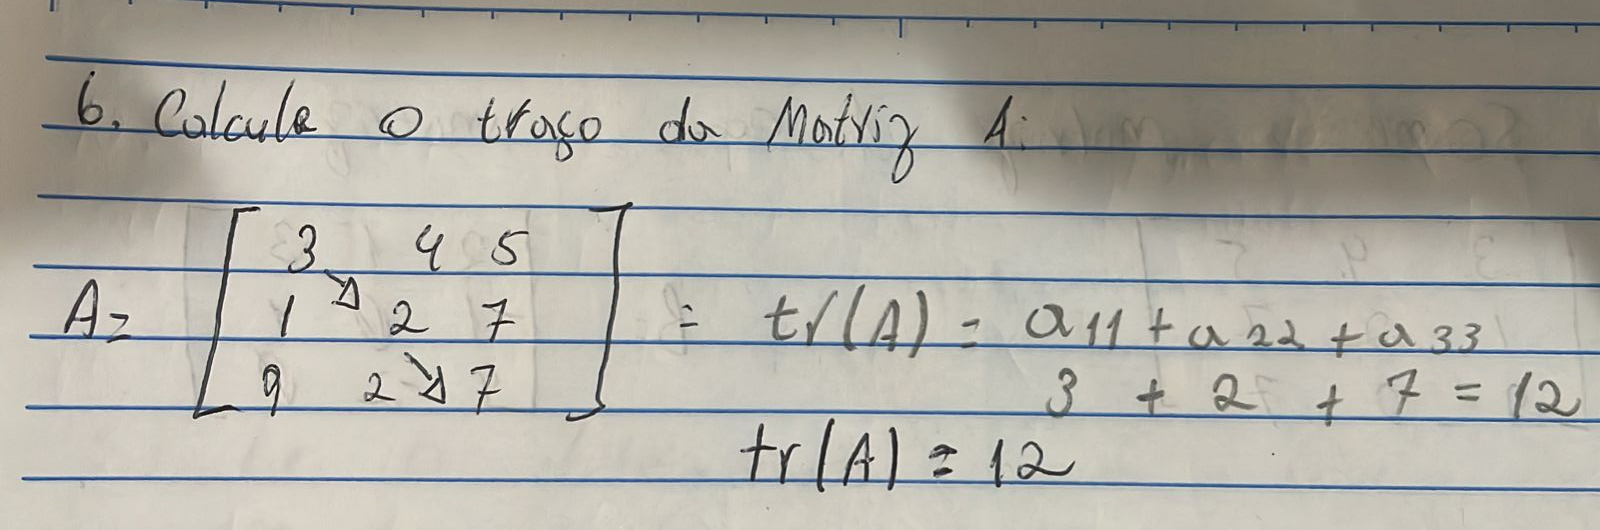 6. Calcule o traço da Matriz A:
3 4 5
A= 1 2 7 = tr(A) = a11 + a22 + a33
9 2 7 3 + 2 + 7 = 12
tr(A) = 12